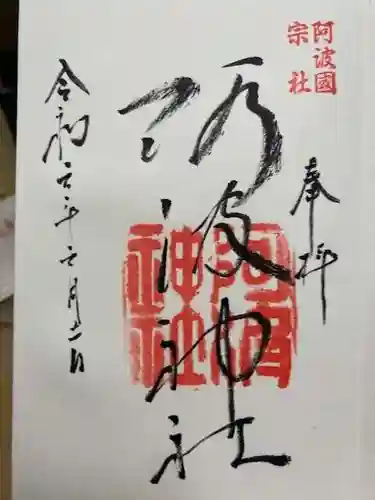 阿波國
宗社
奉拝
阿波神社
阿波
神社
令和 年 月 日